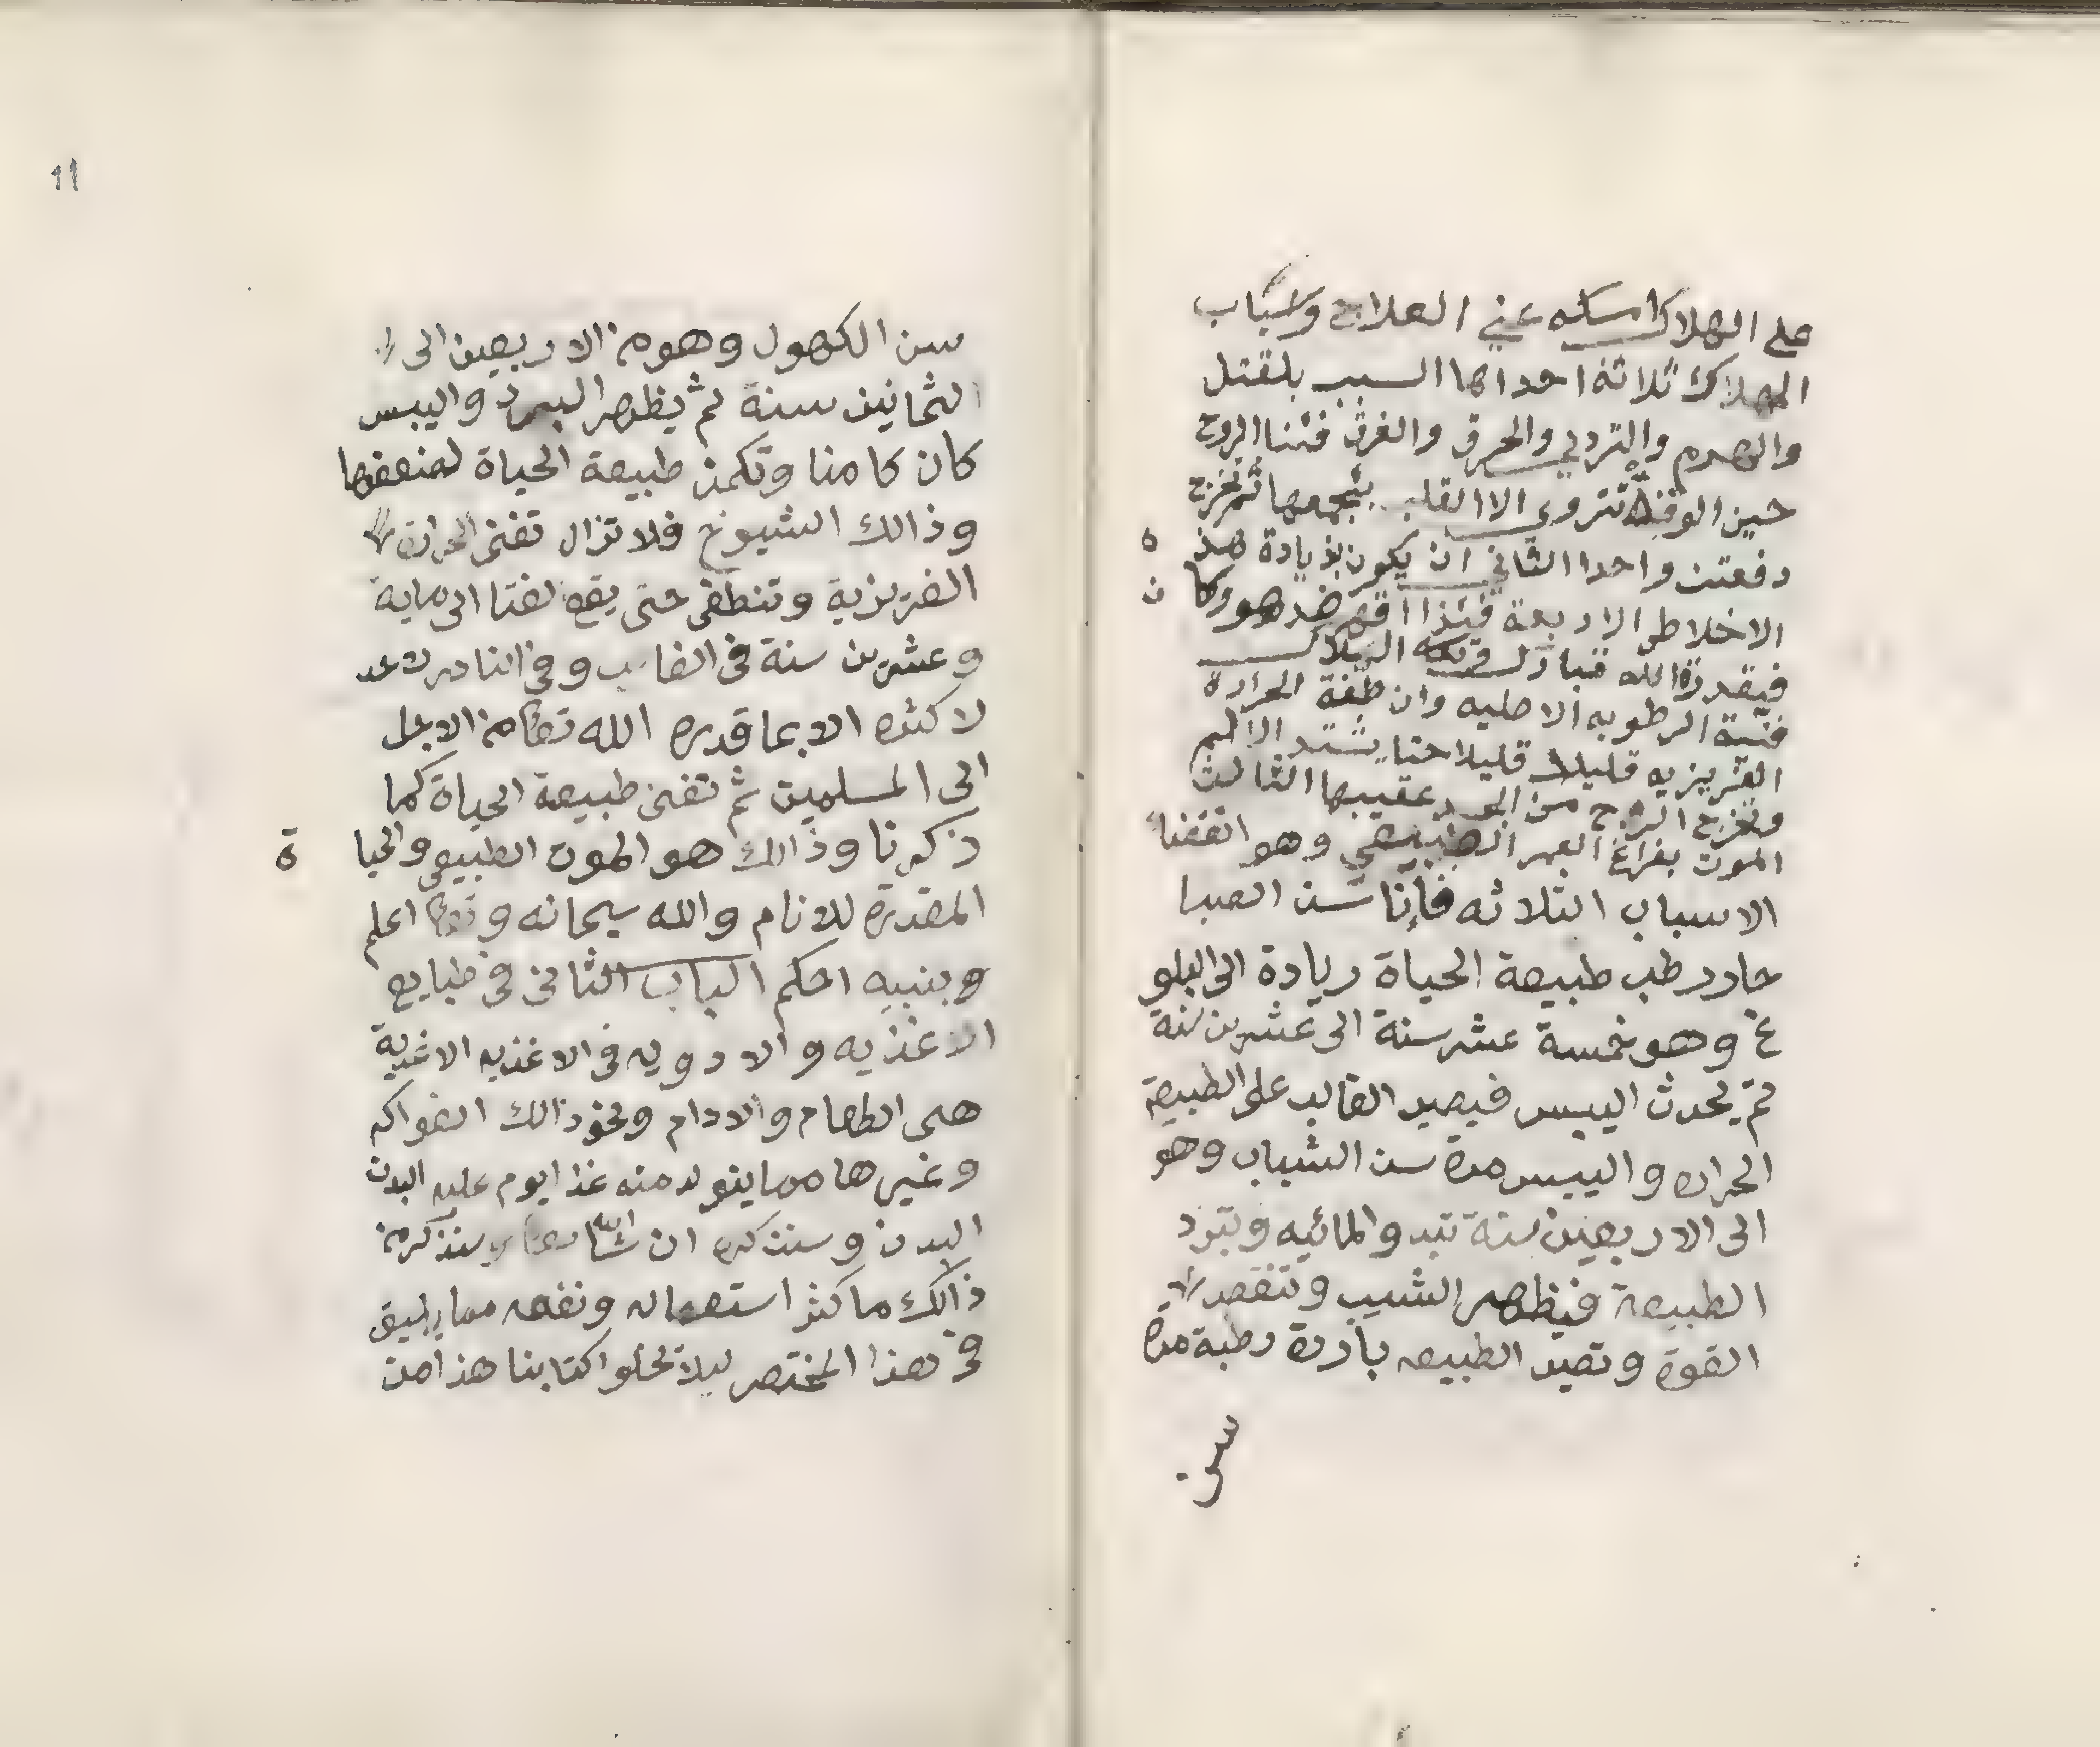 على الهلاك اسكه عني العلاج واسباب
الهلاك ثلاثة احداها السبب بلقتل
والهدم والتردي والحرق والغرق فئنا الروح
حين الوقفة تتروى الا القلب يتجمعها ثم تخرج
دفعتن واحدا الثاني ان يكون بزيادة هذه
الاخلاط الاربعة فئذا اقهر ضدهو وكان
فيقدرة الله تبارك الهلاك
فنية الرطوبه الاصليه وان طفة الحرارة
الغريزيه قليلا قليلا حتا يشتد الالم
وتخرج الروح من الجسد عقيبها الثالث
الموت بفراغ العمر الطبيعي وهو اتقفنا
الاسباب الثلاثه فإنا سن الصبا
حادر رطب طبيعة الحياة زيادة الى البلو
غ وهو خمسة عشر سنة الى عشرين سنة
ثم يحدث اليبس فيصير الغالب على الطبيعة
الحراره واليبس مدة سن الشباب وهو
الى الاربعين سنة تبدو المائيه وتبرد
الطبيعة فيظهر الشيب وتنقص
القوة وتصير الطبيعه باردة رطبة مدة
سن
11
سن الكهول وهو من الاربعين الى
الثمانين سنة ثم يظهر البرد واليبس
كان كامنا وتكمن طبيعة الحياة لضعفها
وذالك الشيوخ فلا تزال تفنى الحرارة
الغريزية وتنطفى حتى يقع لفنا الى ماية
وعشرين سنة في الغالب وفي النادر
لا كثره الا بما قدره الله تعالى من الاجل
الى المسلمين ثم تفنى طبيعة الحياة كما
ذكرنا وذالك هو الموت الطبيعي والحيا ة
المقدرة للانام والله سبحانه وتعالى اعلم
وبنبيه احكم الباب الثاني في طبايع
الاغذيه والادويه في الاغذيه الاغدية
هى الطعام والادام ونحو ذالك الفواكه
وغيرها مما يتولد منه غذا يوم عليه البدن
البدن وسنذكره ان شا الله تعالى وسنذكر من
ذالك ما كثر استعماله ونفعه مما يليق
في هذا المختصر ليلا تخلوا كتابنا هذا من